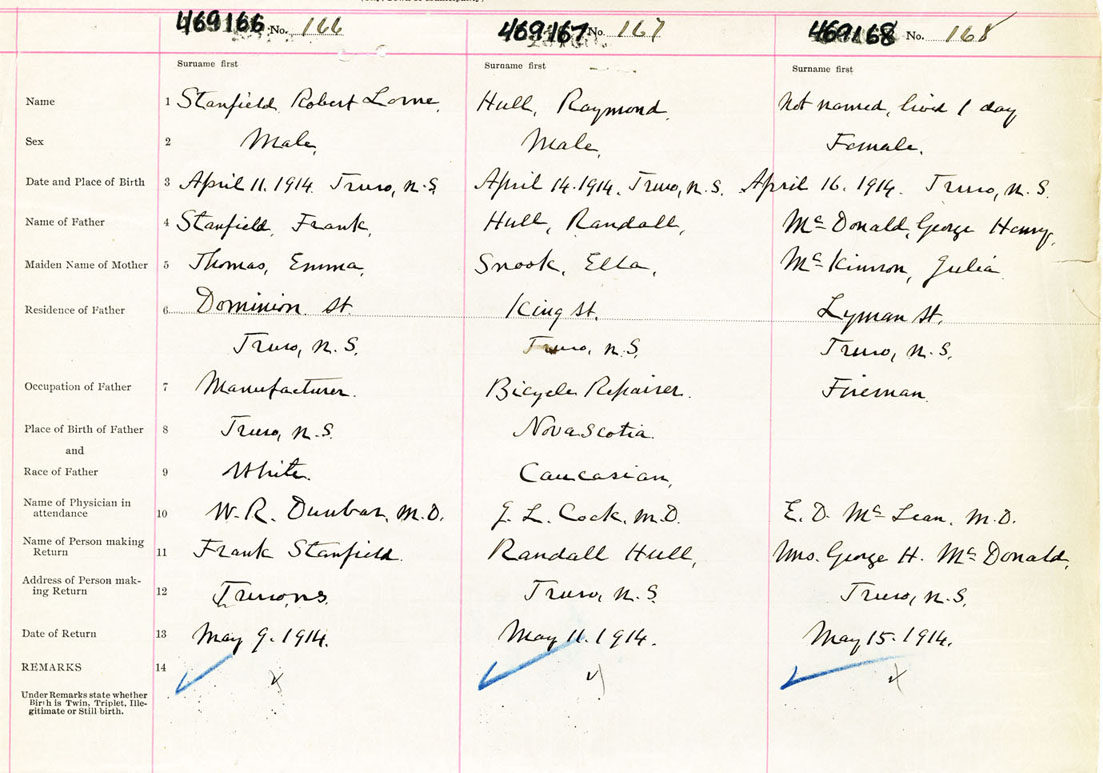 469166 No. 166 469167 No. 167 469168 No. 168
Surname first Surname first Surname first
Name 1 Stanfield Robert Lorne, Hull, Raymond, Not named, lived 1 day
Sex 2 Male, Male, Female.
Date and Place of Birth 3 April 11. 1914. Truro, N.S. April 14. 1914. Truro, N.S. April 16. 1914. Truro, N.S.
Name of Father 4 Stanfield, Frank, Hull, Randall, McDonald, George Henry,
Maiden Name of Mother 5 Thomas, Emma, Snook, Ella, McKinnon, Julia
Residence of Father 6 Dominion St. King St. Lyman St.
Truro, N.S. Truro, N.S. Truro, N.S.
Occupation of Father 7 Manufacturer. Bicycle Repairer. Fireman.
Place of Birth of Father 8 Truro, N.S. Nova Scotia.
and
Race of Father 9 White. Caucasian,
Name of Physician in
attendance 10 W. R. Dunbar, M.D. L. Cock, M.D. E. D. McLean, M.D.
Name of Person making
Return 11 Frank Stanfield. Randall Hull, Mrs. George H. McDonald,
Address of Person mak-
ing Return 12 Truro, N.S. Truro, N.S. Truro, N.S.
Date of Return 13 May 9. 1914. May 11. 1914. May 15. 1914.
REMARKS 14
Under Remarks state whether
Birth is Twin, Triplet, Ille-
gitimate or Still birth.